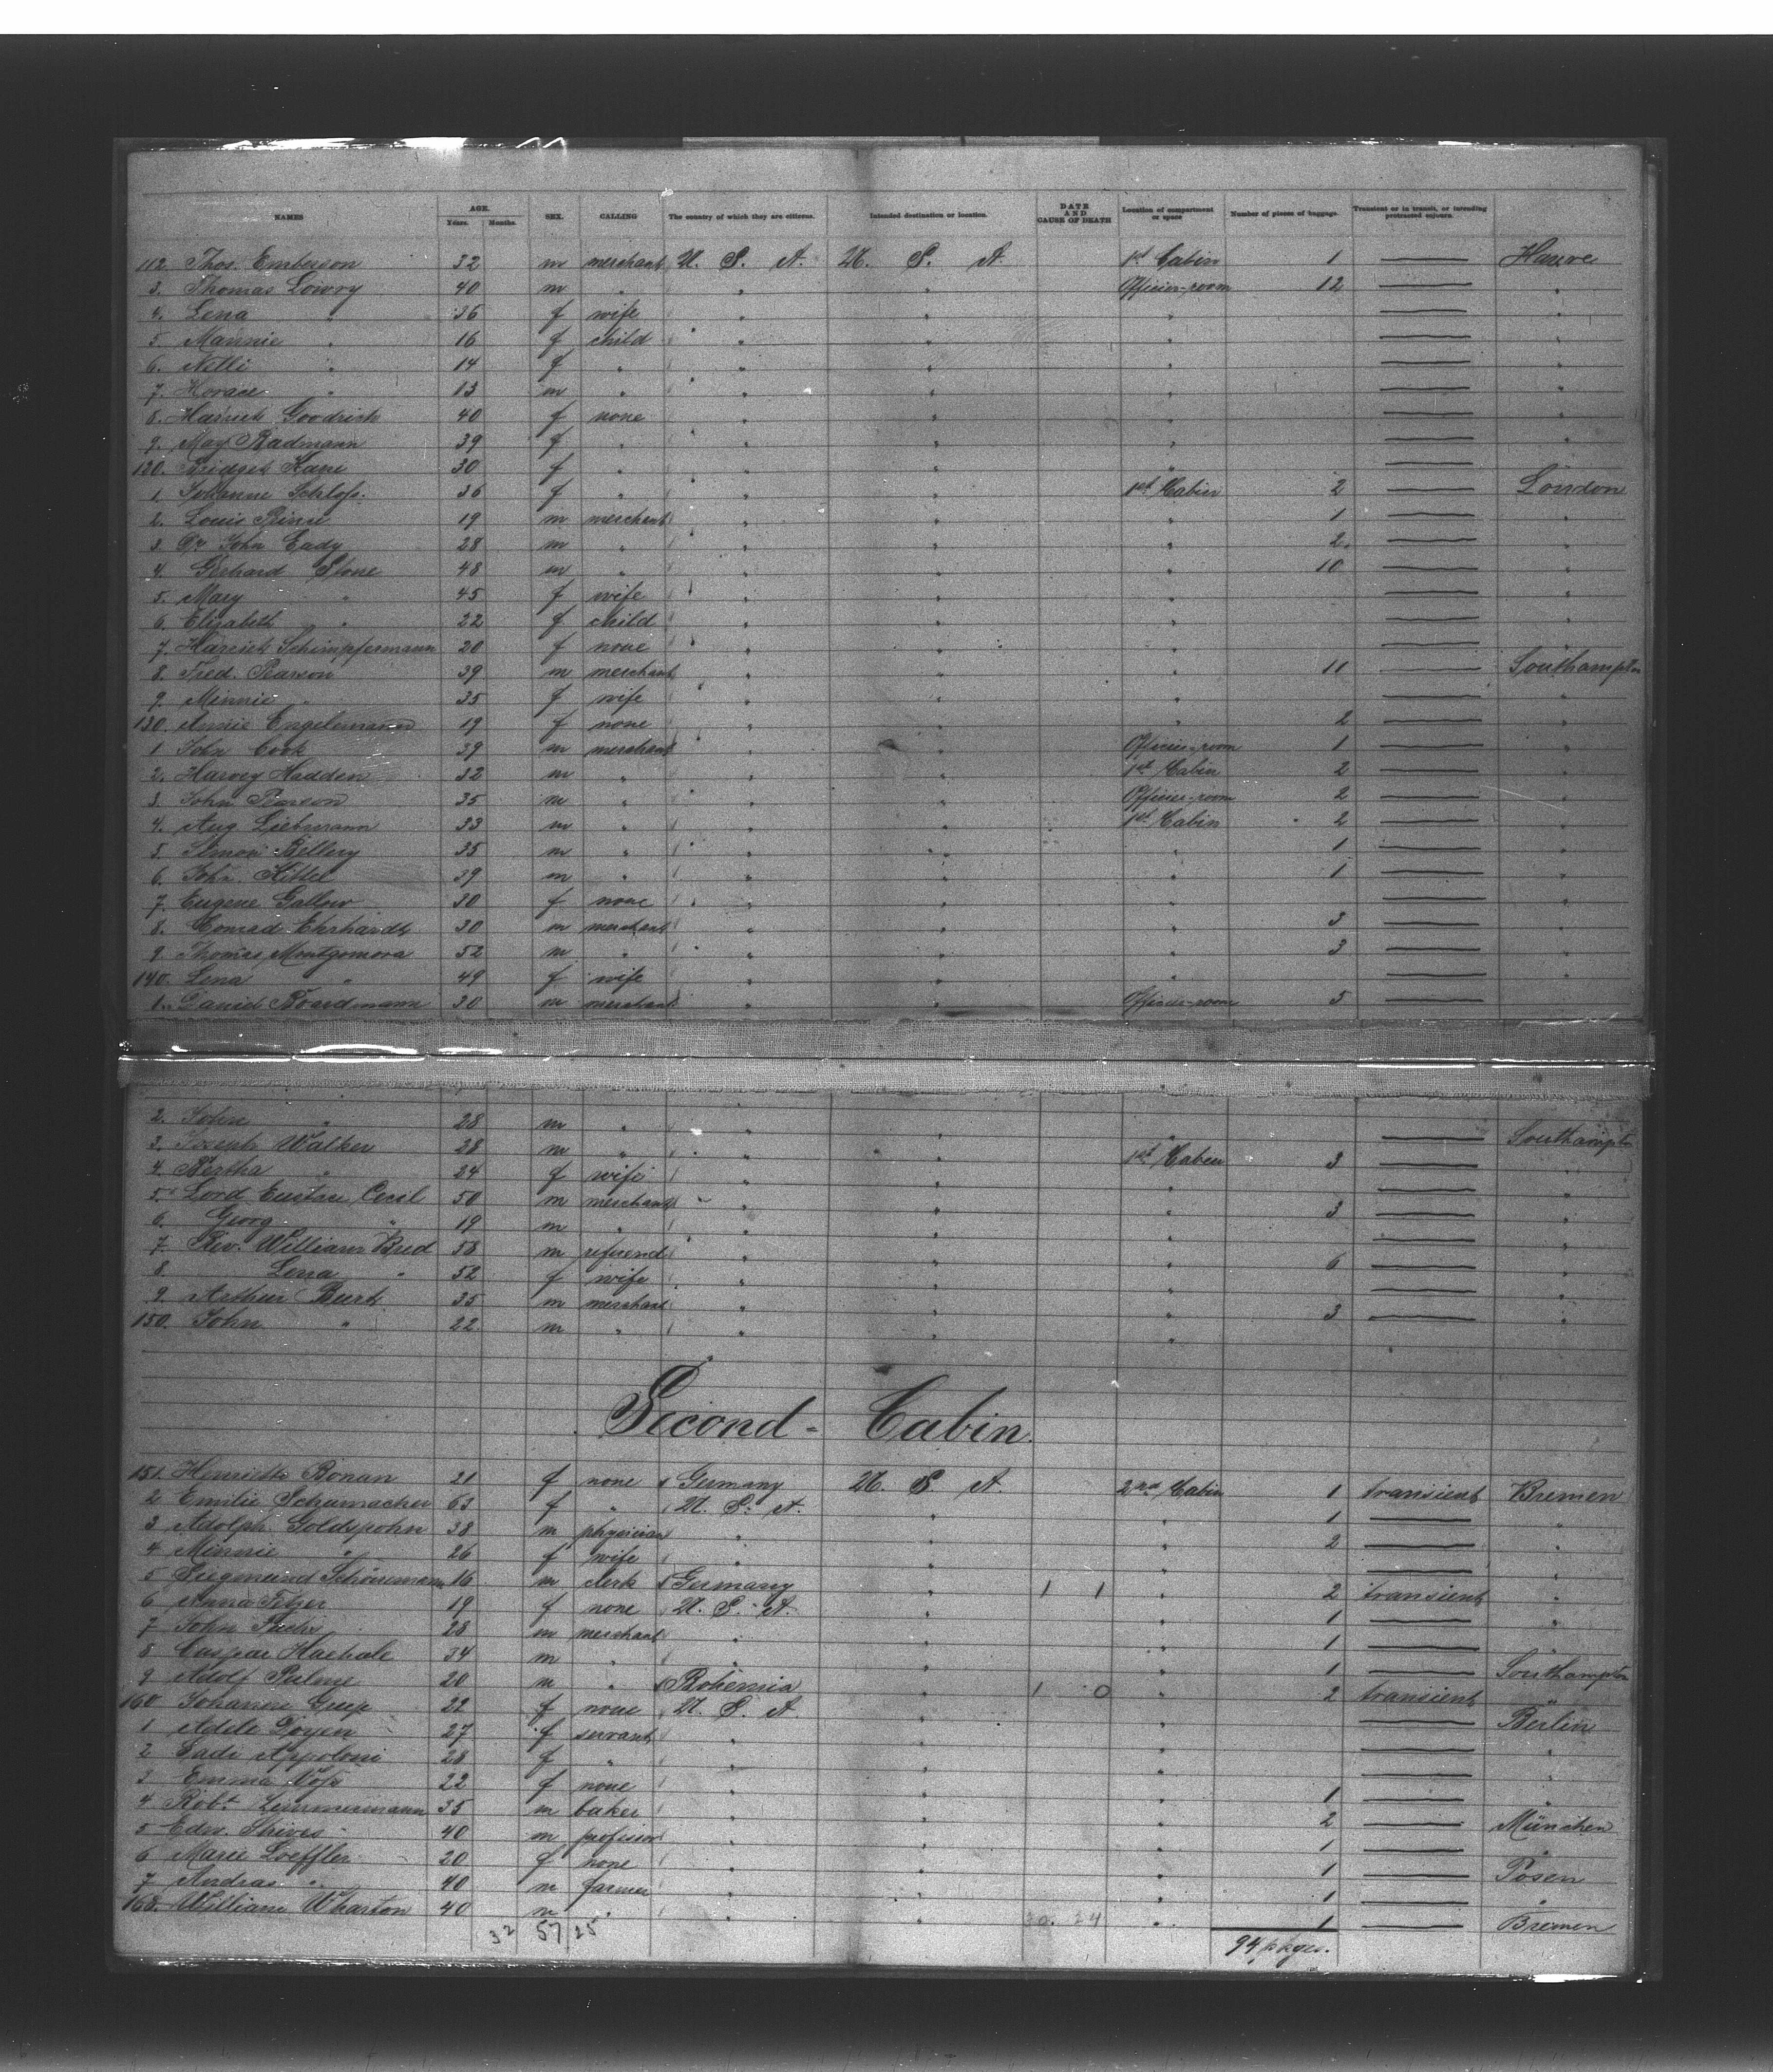 NAMES AGE. Years. Months. SEX. CALLING The country of which they are citizens. Intended destination or location. DATE AND CAUSE OF DEATH Location of compartment or space Number of pieces of baggage. Transient or in transit, or intending protracted sojourn.
112. Thos. Emberson 32 m merchant U. S. A. U. S. A. 1st Cabin 1 — Havre
3. Thomas Lowry 40 m " " " Officier-room 12 — "
4. Lena " 36 f wife " " " — "
5. Mannie " 16 f child " " " — "
6. Nelli " 14 f " " " " — "
7. Horace " 13 m " " " " — "
8. Harriet Goodrich 40 f none " " " — "
9. May Radmann 39 f " " " " — "
120. Bridget Kane 30 f " " " " —
1. Johanne Schloß. 36 f " " " 1st Cabin 2 — London
2. Louis 19 m merchant " " " 1 — "
3. Dr John Eady 28 m " " " " 2. — "
4. Gerhard Stone 48 m " " " " 10 — "
5. Mary " 45 f wife " " " — "
6. Elisabeth " 22 f child " " " — "
7. Harriet Schimpfermann 20 f none " " " — "
8. Fred. Pearson 39 m merchant " " " 11 — Southampton
9. Minnie " 35 f wife " " " — "
130. Annie Engelemann 19 f none " " " 2 — "
1 John Cook 39 m merchant " " Officier-room 1 — "
2. Harvey Hadden 32 m " " " 1st Cabin 2 — "
3. John Pearson 35 m " " " Officier-room 2 — "
4. Aug Liebmann 33 m " " " 1st Cabin 2 — "
5. Simon Bellery 35 m " " " " 1 — "
6. John Kittel 39 m " " " " 1 — "
7. Eugene Gallow 30 f none " " " — "
8. Conrad Ehrhardt 30 m merchant " " " 3 — "
9. Thomas Montgomora 52 m " " " " 3 — "
140. Lena " 49 f wife " " " — "
1. Daniel Boardmann 30 m merchant " " Officier-room 5 —
2. John " 28 m " " " " — Southampton
3. Joseph Walker 28 m " " " 1st Cabin 3 — "
4. Bertha " 24 f wife " " " — "
5. Lord Eustace Cecil 50 m merchant " " " 3 — "
6. Georg " 19 m " " " " — "
7. Rev. William Bred 58 m referend " " " 6 — "
8. Lena " 52 f wife " " " — "
9. Arthur Burt 35 m merchant " " " 3 — "
150. John " 22 m " " " "
Second - Cabin.
151. Henriette Ronan 21 f none Germany U. S. A. 2nd Cabin 1 transient Bremen
2 Emilie Schumacher 63 f " U. S. A. " " 1 — "
3 Adolph Goldspohn 38 m physician " " " 2 — "
4 Minnie " 26 f wife " " " — "
5 Siegmund Schönemann 16 m clerk Germany " 1 1 " 2 transient "
6 Anna Fetzer 19 f none U. S. A. " " 1 — "
7 John Fuchs 28 m merchant " " " 1 — "
8 Caspar Hachale 34 m " " " " 1 — Southampton
9 Adolf Palme 20 m " Bohemia " 1 0 " 2 transient "
160 Johanne 22 f none U. S. A. " " — Berlin
1 Adele Doyen 27 f servant " " " — "
2 Sadi Appoloni 28 f " " " " — "
3 Emma Voß 22 f none " " " 1 — "
4 Robt. Zimmermann 35 m baker " " " 2 — München
5 Edw. Shives 40 m professor " " " 1 — "
6 Marie Loeffler 20 f none " " " 1 — Posen
7 Andras " 40 m farmer " " " 1 — "
168. William Wharton 40 m " " " " 1 — Bremen
32 57 25 30. 24 94 pkges.